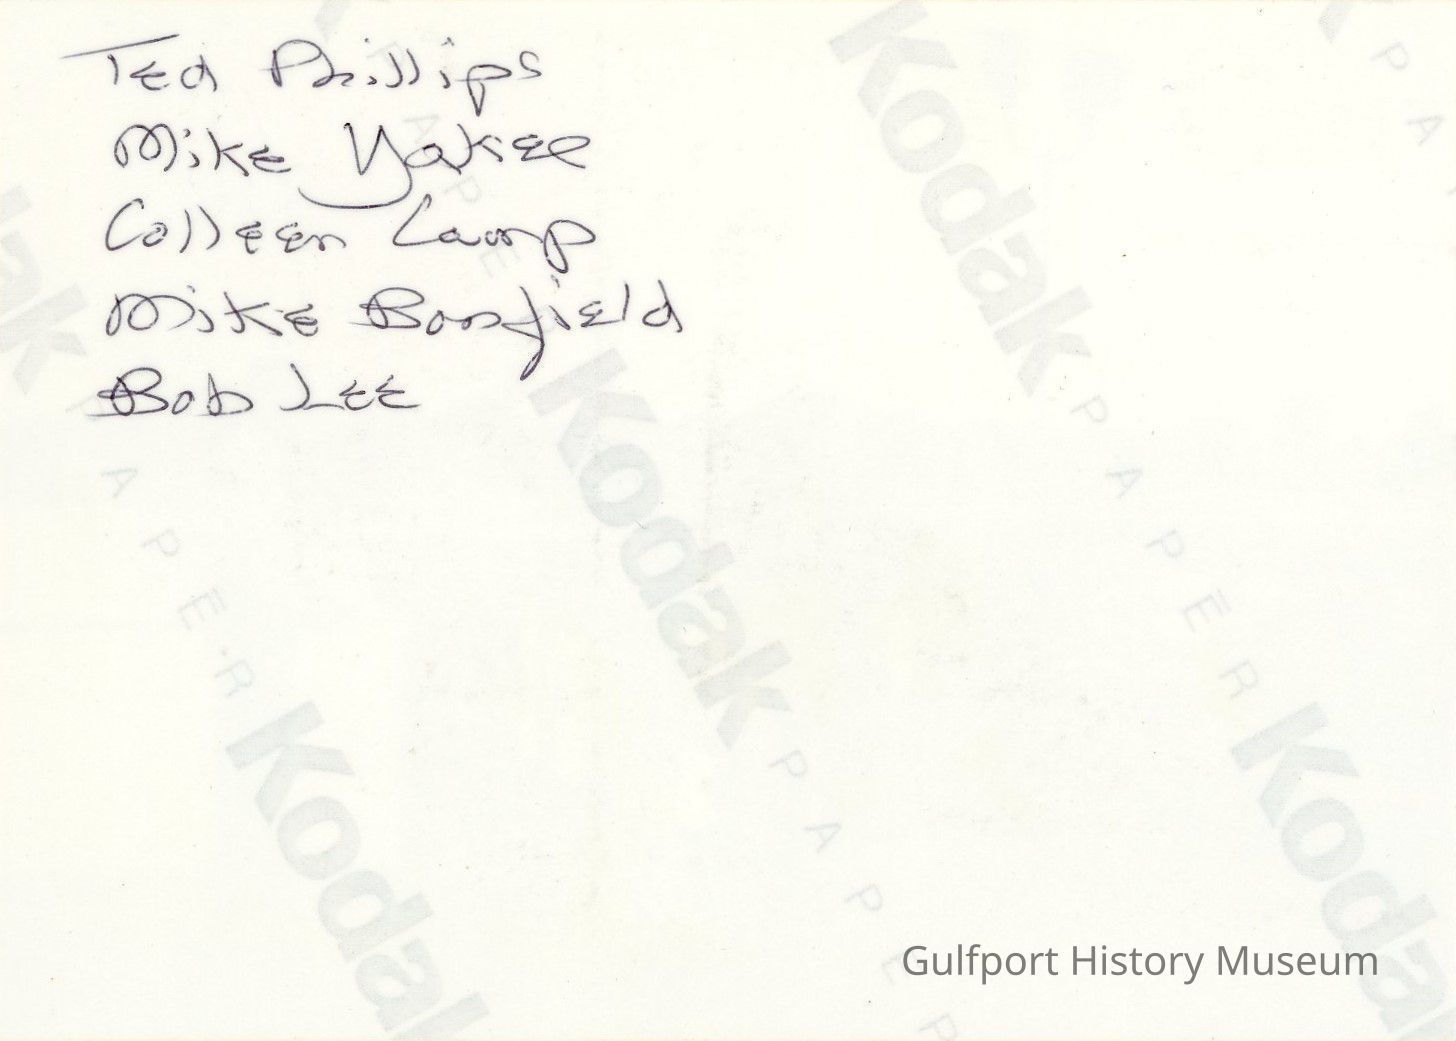 Ted Phillips
Mike Yakee
Colleen Lamp
Mike Banfield
Bob Lee
Kodak PAPER
Kodak PAPER
Kodak PAPER
Kodak
Kodak
Gulfport History Museum